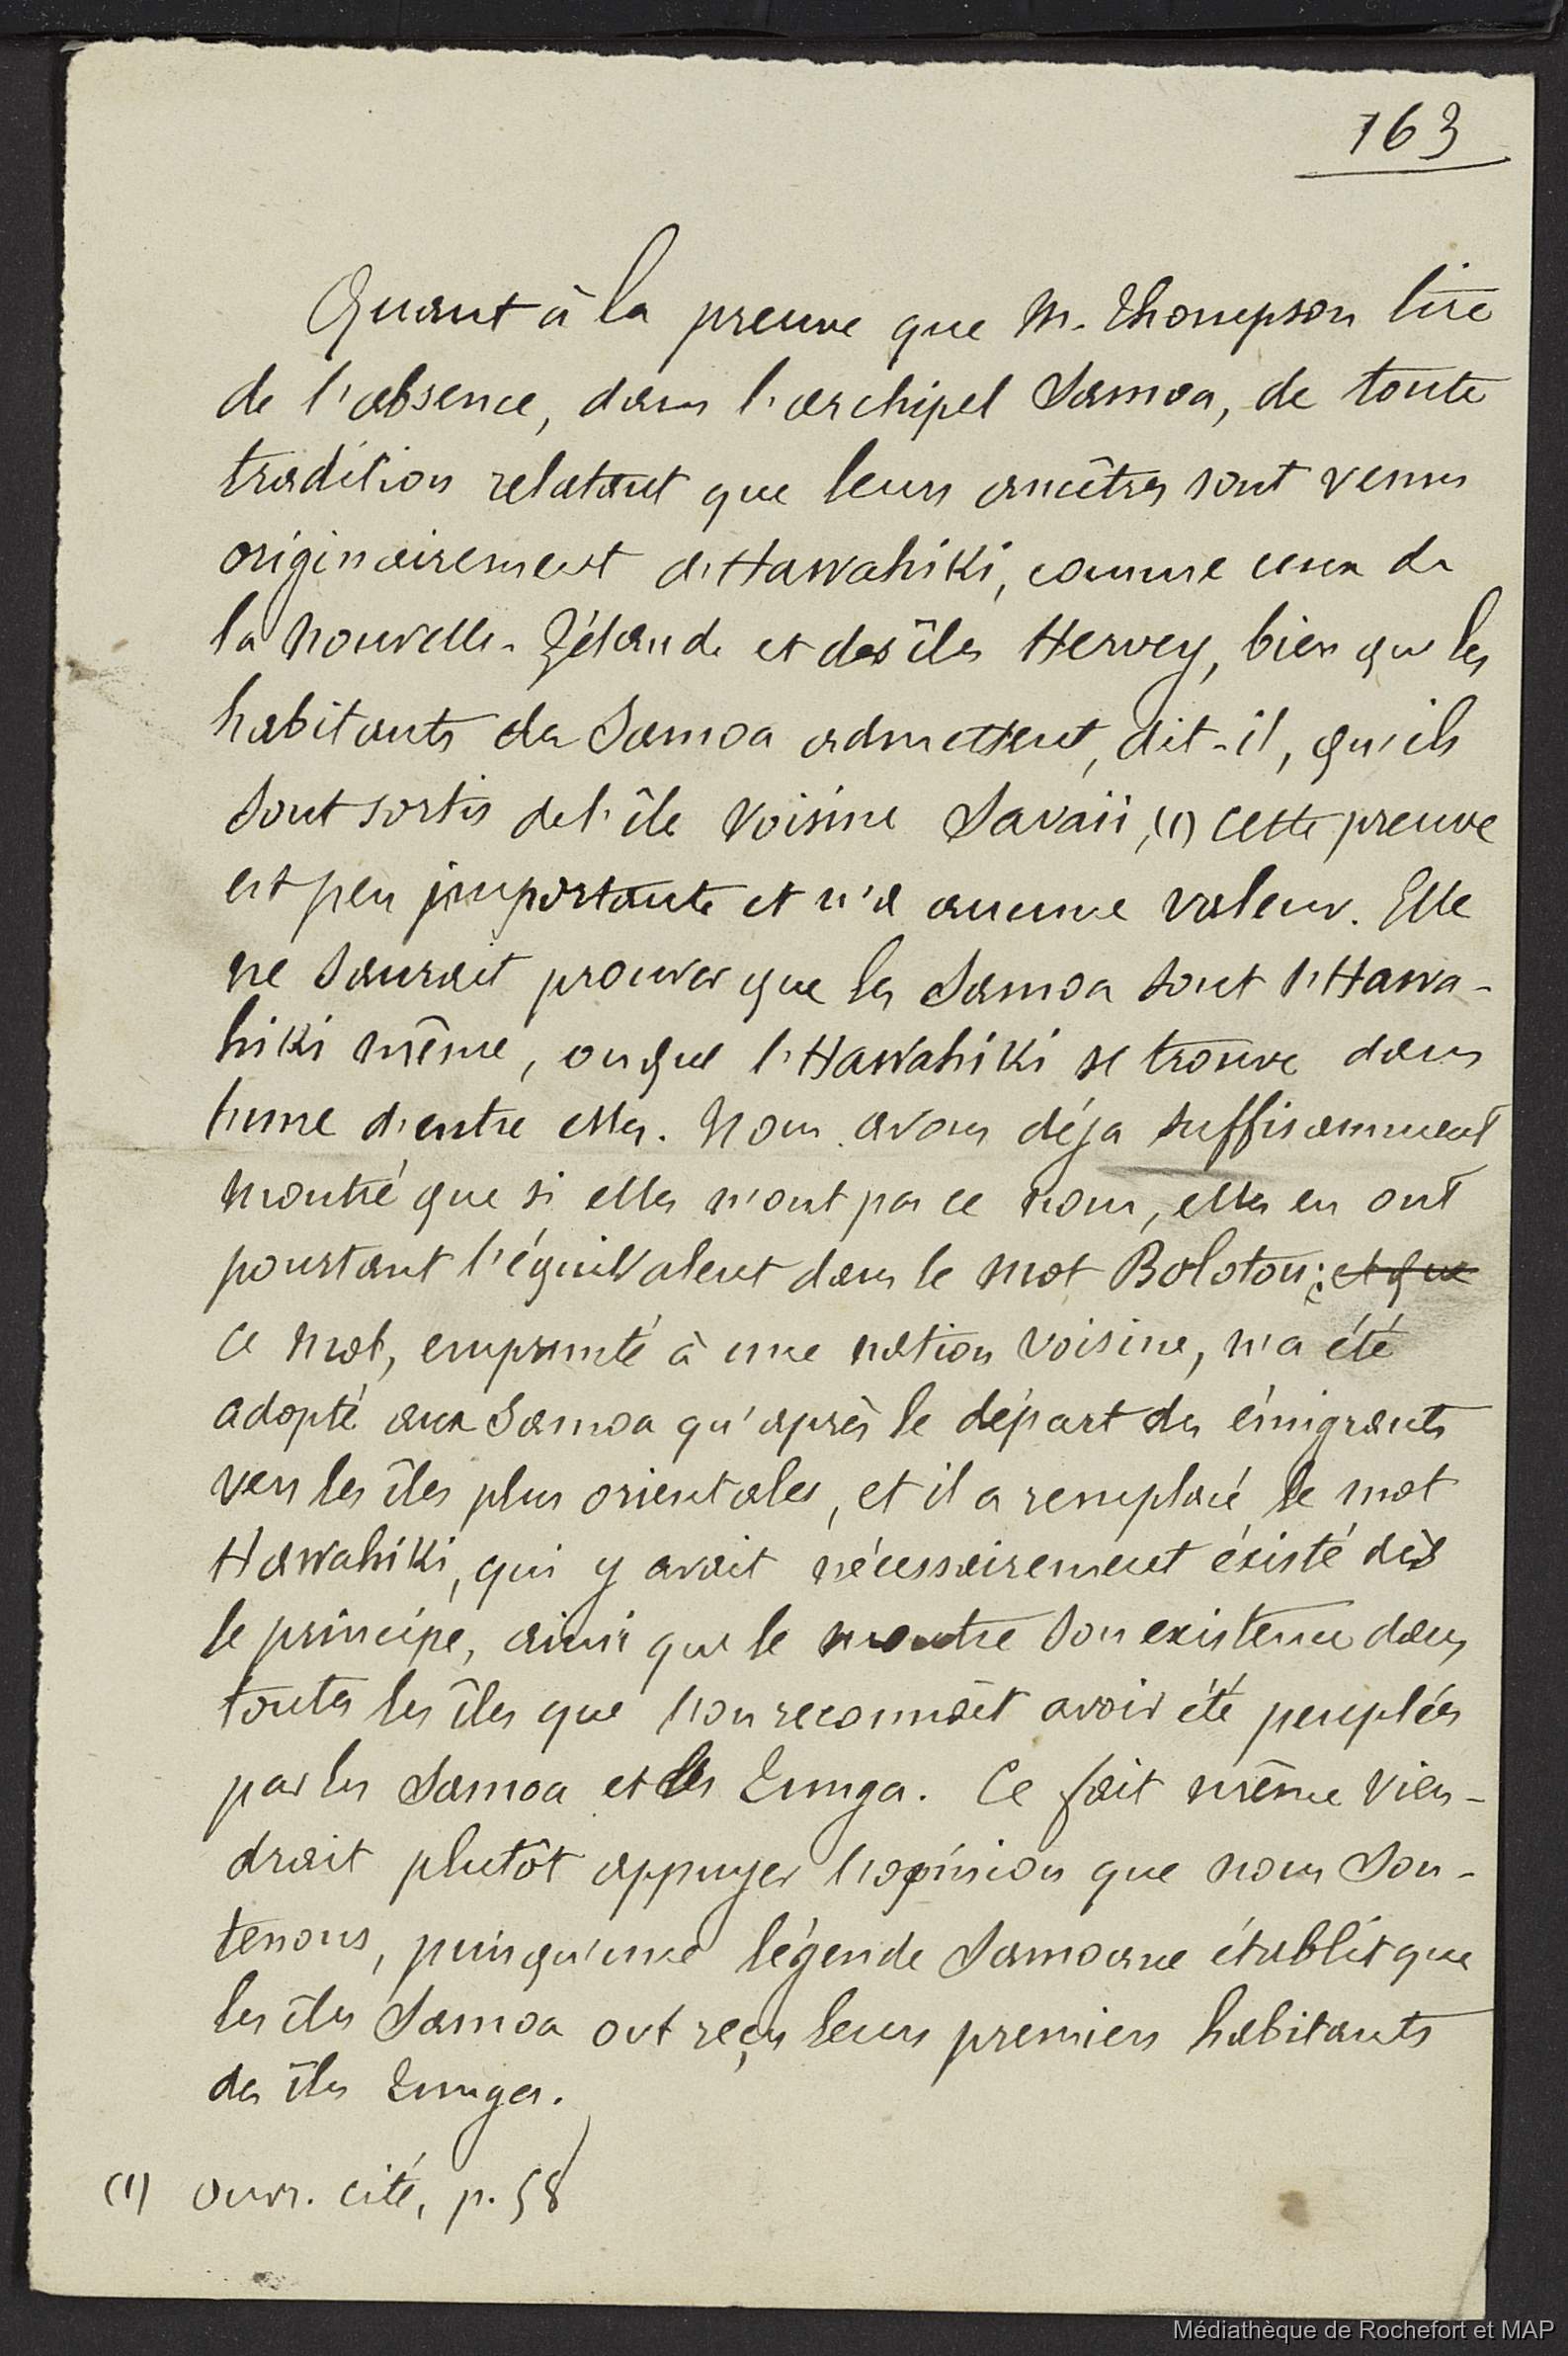 163
Quant à la preuve que M. Thompson tire
de l'absence, dans l'archipel Samoa, de toute
tradition relatant que leurs ancêtres sont venus
originairement d'Hawahiki, comme ceux de
la Nouvelle-Zélande et des îles Hervey, bien que les
habitants des Samoa admettent, dit-il, qu'ils
sont sortis de l'île voisine Savaii, (1) cette preuve
est peu importante et n'a aucune valeur. Elle
ne saurait prouver que les Samoa sont l'Hawa-
hiki même, ou que l'Hawahiki se trouve dans
l'une d'entre elles. Nous avons déja suffisamment
montré que si elles n'ont pas ce nom, elles en ont
pourtant l'équivalent dans le mot Bolotou; et que
ce mot, emprunté à une nation voisine, n'a été
adopté aux Samoa qu'après le départ des émigrants
vers les îles plus orientales, et il a remplacé le mot
Hawahiki, qui y avait nécessairement éxisté dès
le principe, ainsi que le montre son existence dans
toutes les îles que l'on reconnaît avoir été peuplées
par les Samoa et les Tunga. Ce fait même vien-
drait plutôt appuyer l'opinion que nous sou-
tenons, puisqu'une légende Samoane établit que
les îles Samoa ont reçu leurs premiers habitants
des îles Tunga.
(1) Ouvr. cité, p. 58
Médiathèque de Rochefort et MAP